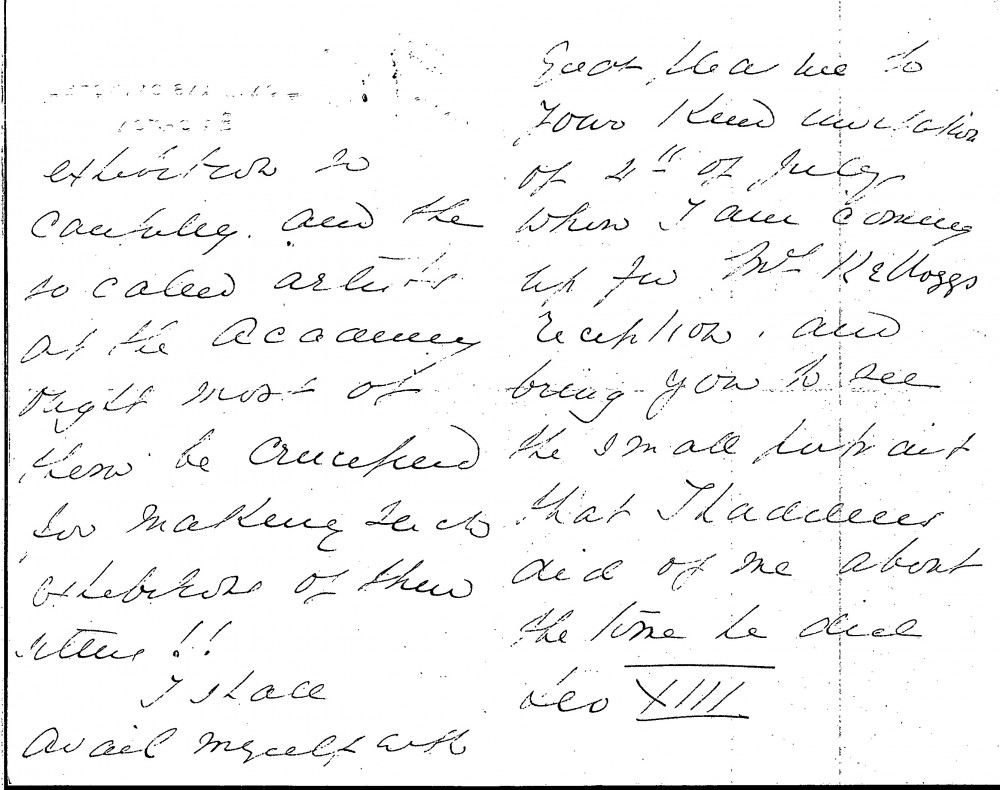 exhibition so
and the
so called artists
at the Academy
ought most of
them be crucified
for making such
exhibitions of their
sitters!!
I shall
avail myself with
great pleasure to
your kind invitation
of 4th of July
when I am coming
up for Mrs Kelloggs
reception. and
bring you to see
the small portrait
that Thaddeus
did of me about
the time he did
Leo XIII